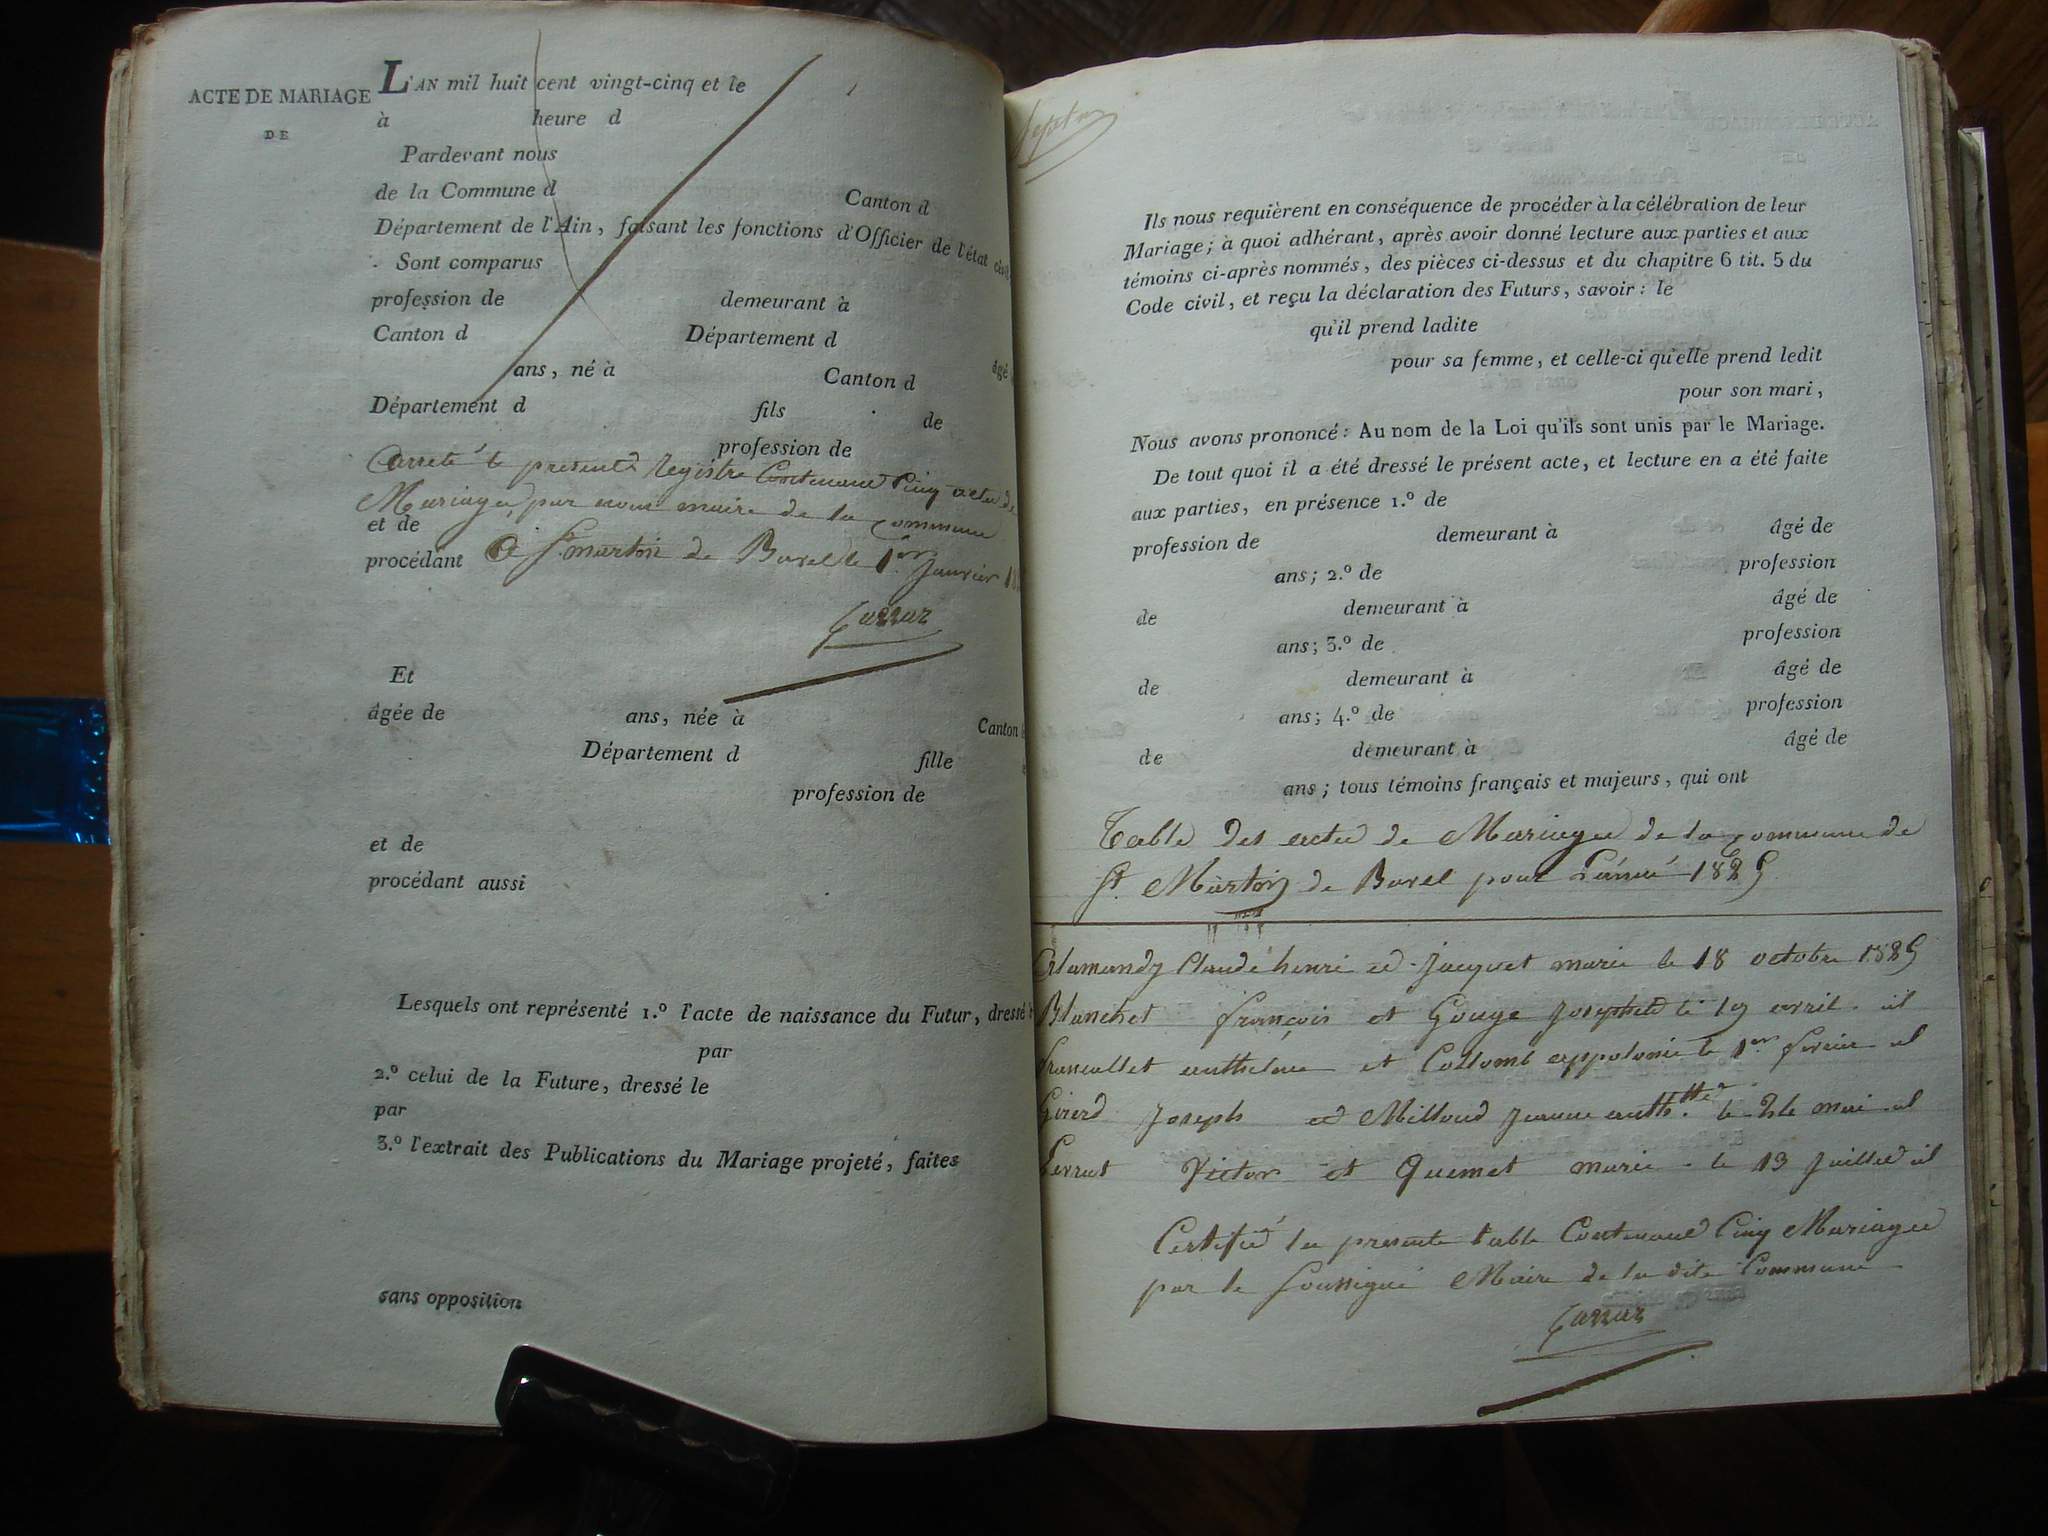 ACTE DE MARIAGE
DE
L'AN mil huit cent vingt-cinq et le
à heure d
Pardevant nous
de la Commune d Canton d
Département de l'Ain, faisant les fonctions d'Officier de l'état civil,
Sont comparus
profession de demeurant à
Canton d Département d
âgé
ans, né à Canton d
Département d fils de
profession de
arreté le present Registre Contenant Cinq actes de
Mariages, par nous maire de la Commune
et de
procédant
St martin de Bavel le 1er Janvier
Et
âgée de ans, née à Canton
Département d fille
profession de
et de
procédant aussi
Lesquels ont représenté 1.º l'acte de naissance du Futur, dressé
par
2.º celui de la Future, dressé le
par
3.º l'extrait des Publications du Mariage projeté, faites
sans opposition
Ils nous requièrent en conséquence de procéder à la célébration de leur
Mariage; à quoi adhérant, après avoir donné lecture aux parties et aux
témoins ci-après nommés, des pièces ci-dessus et du chapitre 6 tit. 5 du
Code civil, et reçu la déclaration des Futurs, savoir: le
qu'il prend ladite
pour sa femme, et celle-ci qu'elle prend ledit
pour son mari,
Nous avons prononcé: Au nom de la Loi qu'ils sont unis par le Mariage.
De tout quoi il a été dressé le présent acte, et lecture en a été faite
aux parties, en présence 1.º de
profession de demeurant à âgé de
ans; 2.º de profession
de demeurant à âgé de
ans; 3.º de profession
de demeurant à âgé de
ans; 4.º de profession
de demeurant à âgé de
ans; tous témoins français et majeurs, qui ont
Table des actes de Mariages de la Commune de
St. Martin de Bavel pour L'année 1825
Claude henri et Jacquet marie le 18 octobre 1825
Blanchet françois et Gouge Josephte le 19 avril id
et Collomb appolonie le 1er fevrier id
Girerd Joseph et Milloud Jeanne anth.tte le mai id
Victor et Quemet marie le 13 Juillet id
Certifié la presente table Contenant Cinq Mariages
par le Soussigné Maire de la dite Commune